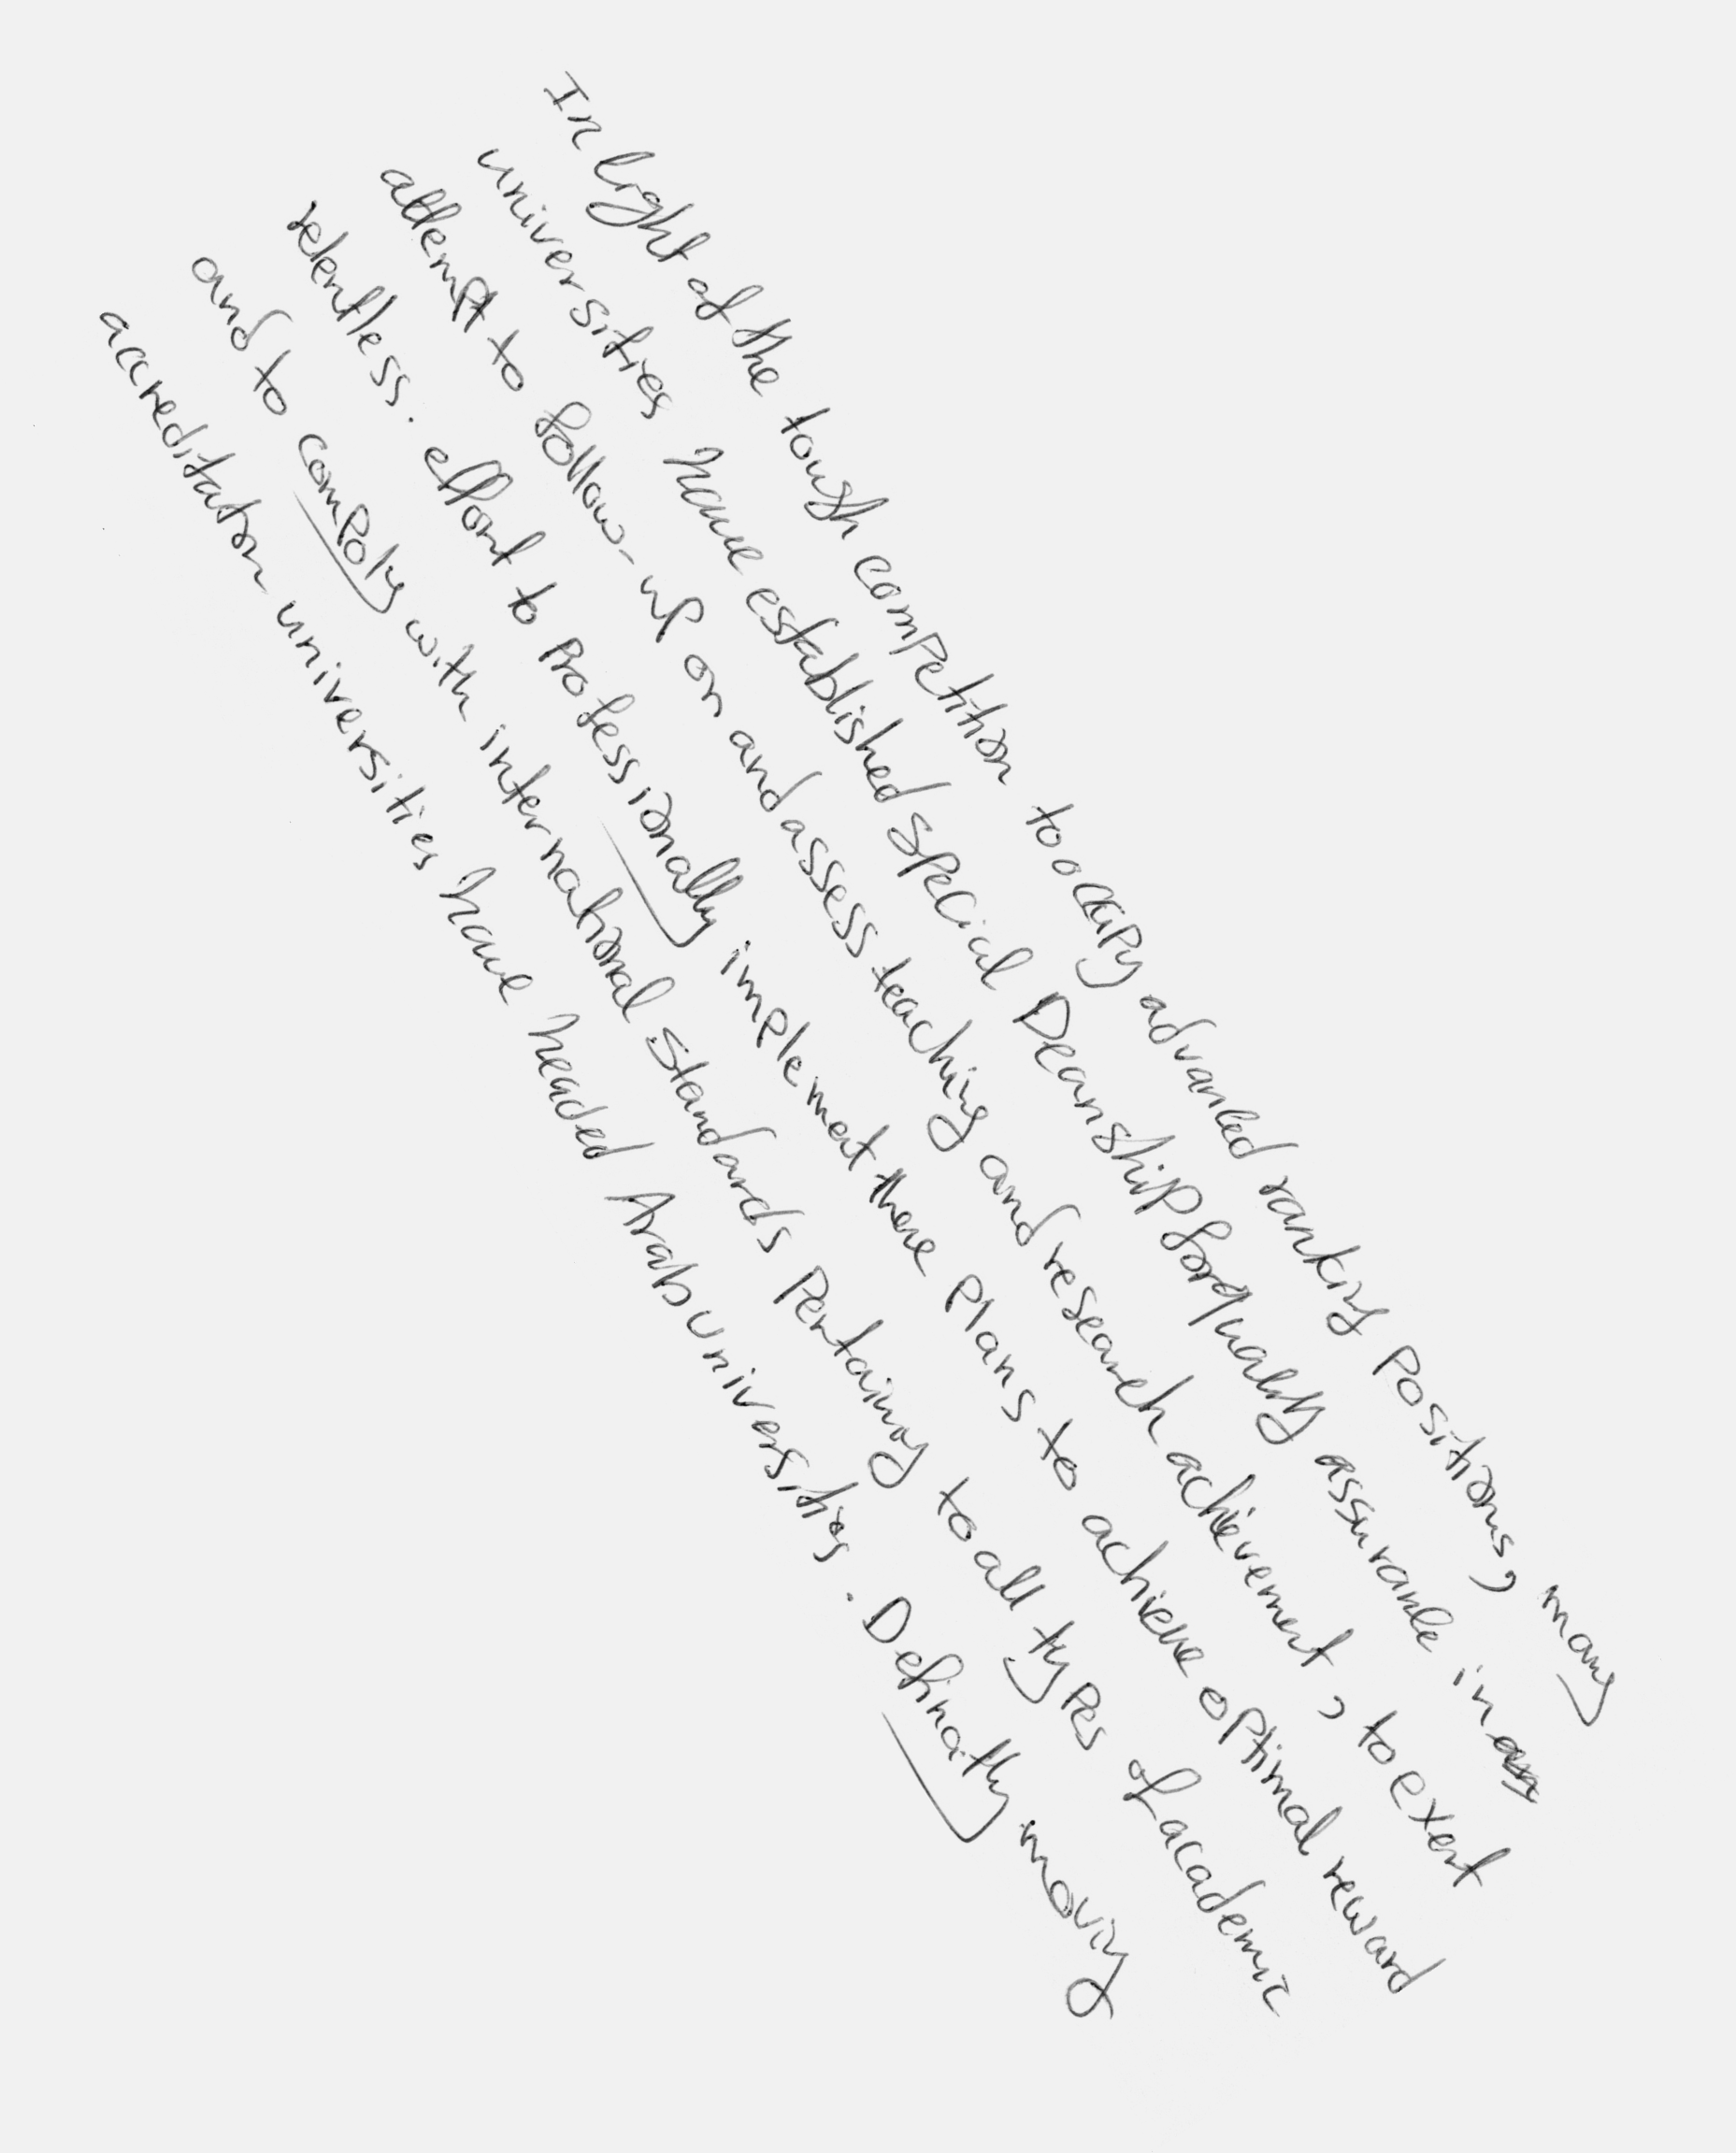 In light of the tough competition to occupy advanced ranking Positions, many
universities have established special Deanship for quality assurance in an
attempt to follow-up on and assess teaching and research achievement, to exert
relentless. effort to Professionally implement there Plans to achieve optimal reward
and to compoly with international standards Pertaining to all types of academic
accreditation universities have headed Arab universities. Definatly moving